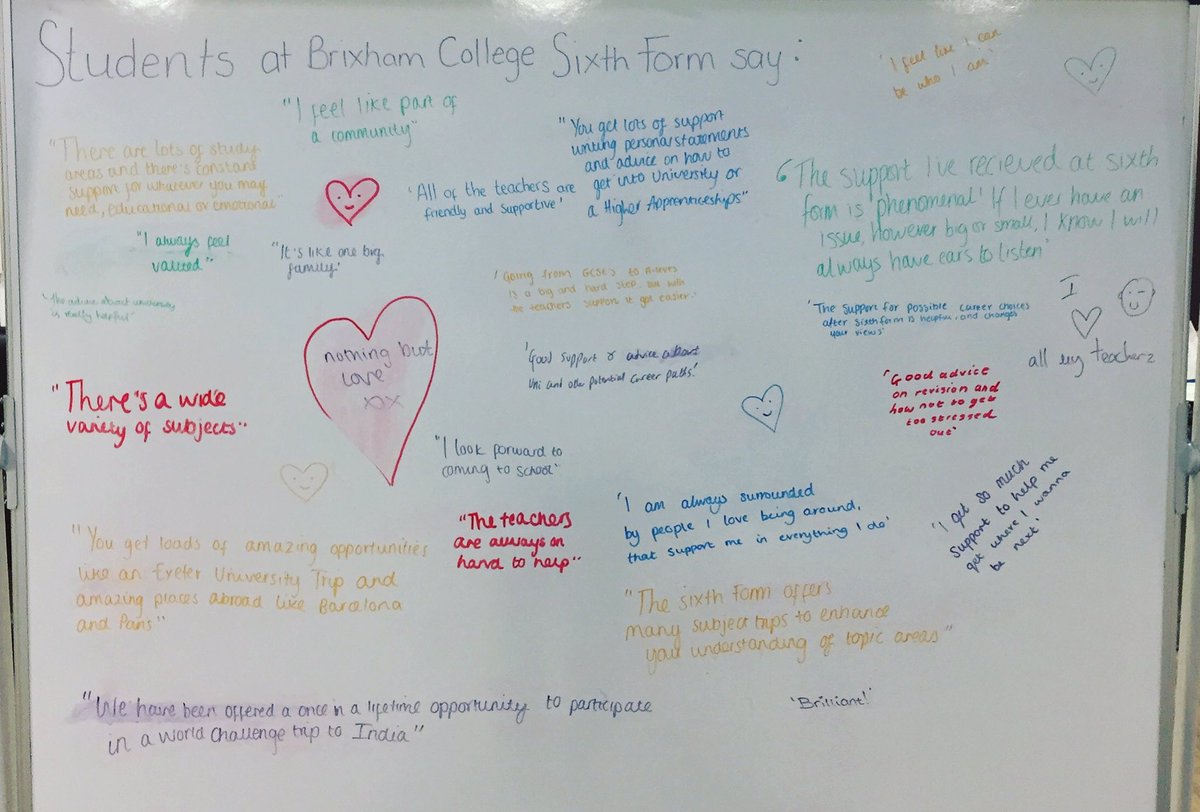 Students at Brixham College Sixth Form say:
'I feel like I can
be who I am'
"I feel like part of
a community"
"You get lots of support
writing personal statements
and advice on how to
get into University or
a Higher Apprenticeships"
"There are lots of study
areas and there's constant
support for whatever you may
need, educational or emotional"
'All of the teachers are
friendly and supportive'
'The support I've recieved at sixth
form is phenomenal! If I ever have an
issue, however big or small, I know I will
always have ears to listen'
"I always feel
valued"
"It's like one big
family'
'Going from GCSEs to A-levels
is a big and hard step, but with
the teachers support it got easier.'
'The advice about university
is really helpful'
'The support for possible career choices
after sixth form is helpful, and changes
your views'
I
all my teacherz
nothing but
love
xx
'Good support & advice about
Uni and other potential career paths!'
'Good advice
on revision and
how not to get
too stressed
out'
"There's a wide
variety of subjects"
"I look forward to
coming to school'
"You get loads of amazing opportunities
like an Exeter University Trip and
amazing places abroad like Barcelona
and Paris"
"The teachers
are always on
hand to help"
'I am always surrounded
by people I love being around,
that support me in everything I do'
'I get so much
support to help me
get where I wanna
be next'
"The sixth form offers
many subject trips to enhance
your understanding of topic areas"
"We have been offered a once in a lifetime opportunity to participate
in a World Challenge trip to India"
'Brilliant!'